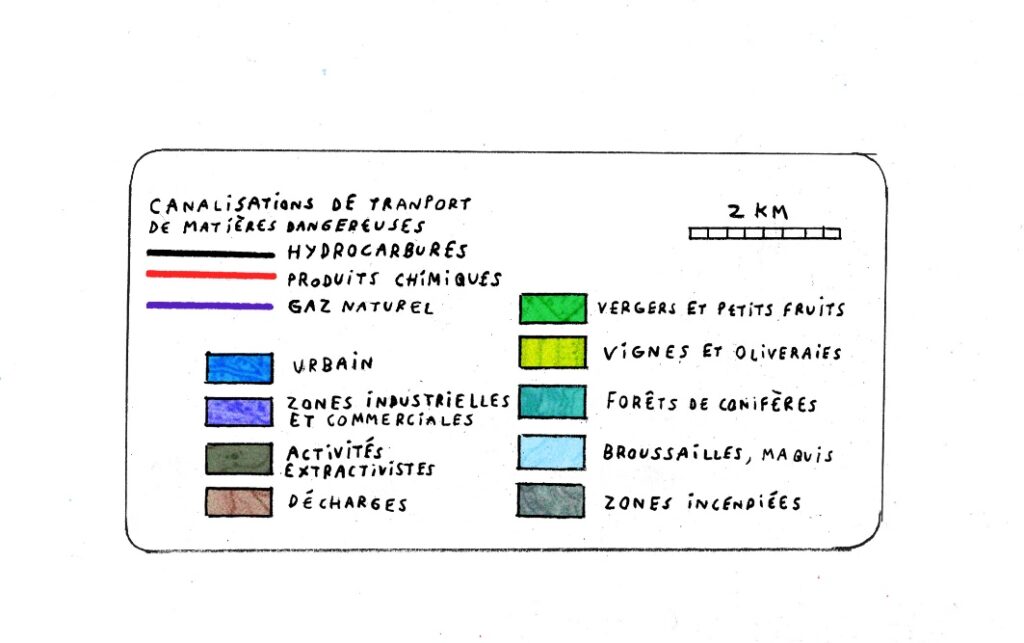 CANALISATIONS DE TRANPORT
DE MATIÈRES DANGEREUSES
HYDROCARBURES
PRODUITS CHIMIQUES
GAZ NATUREL
URBAIN
ZONES INDUSTRIELLES
ET COMMERCIALES
ACTIVITÉS
EXTRACTIVISTES
DÉCHARGES
2 KM
VERGERS ET PETITS FRUITS
VIGNES ET OLIVERAIES
FORÊTS DE CONIFÈRES
BROUSSAILLES, MAQUIS
ZONES INCENDIÉES